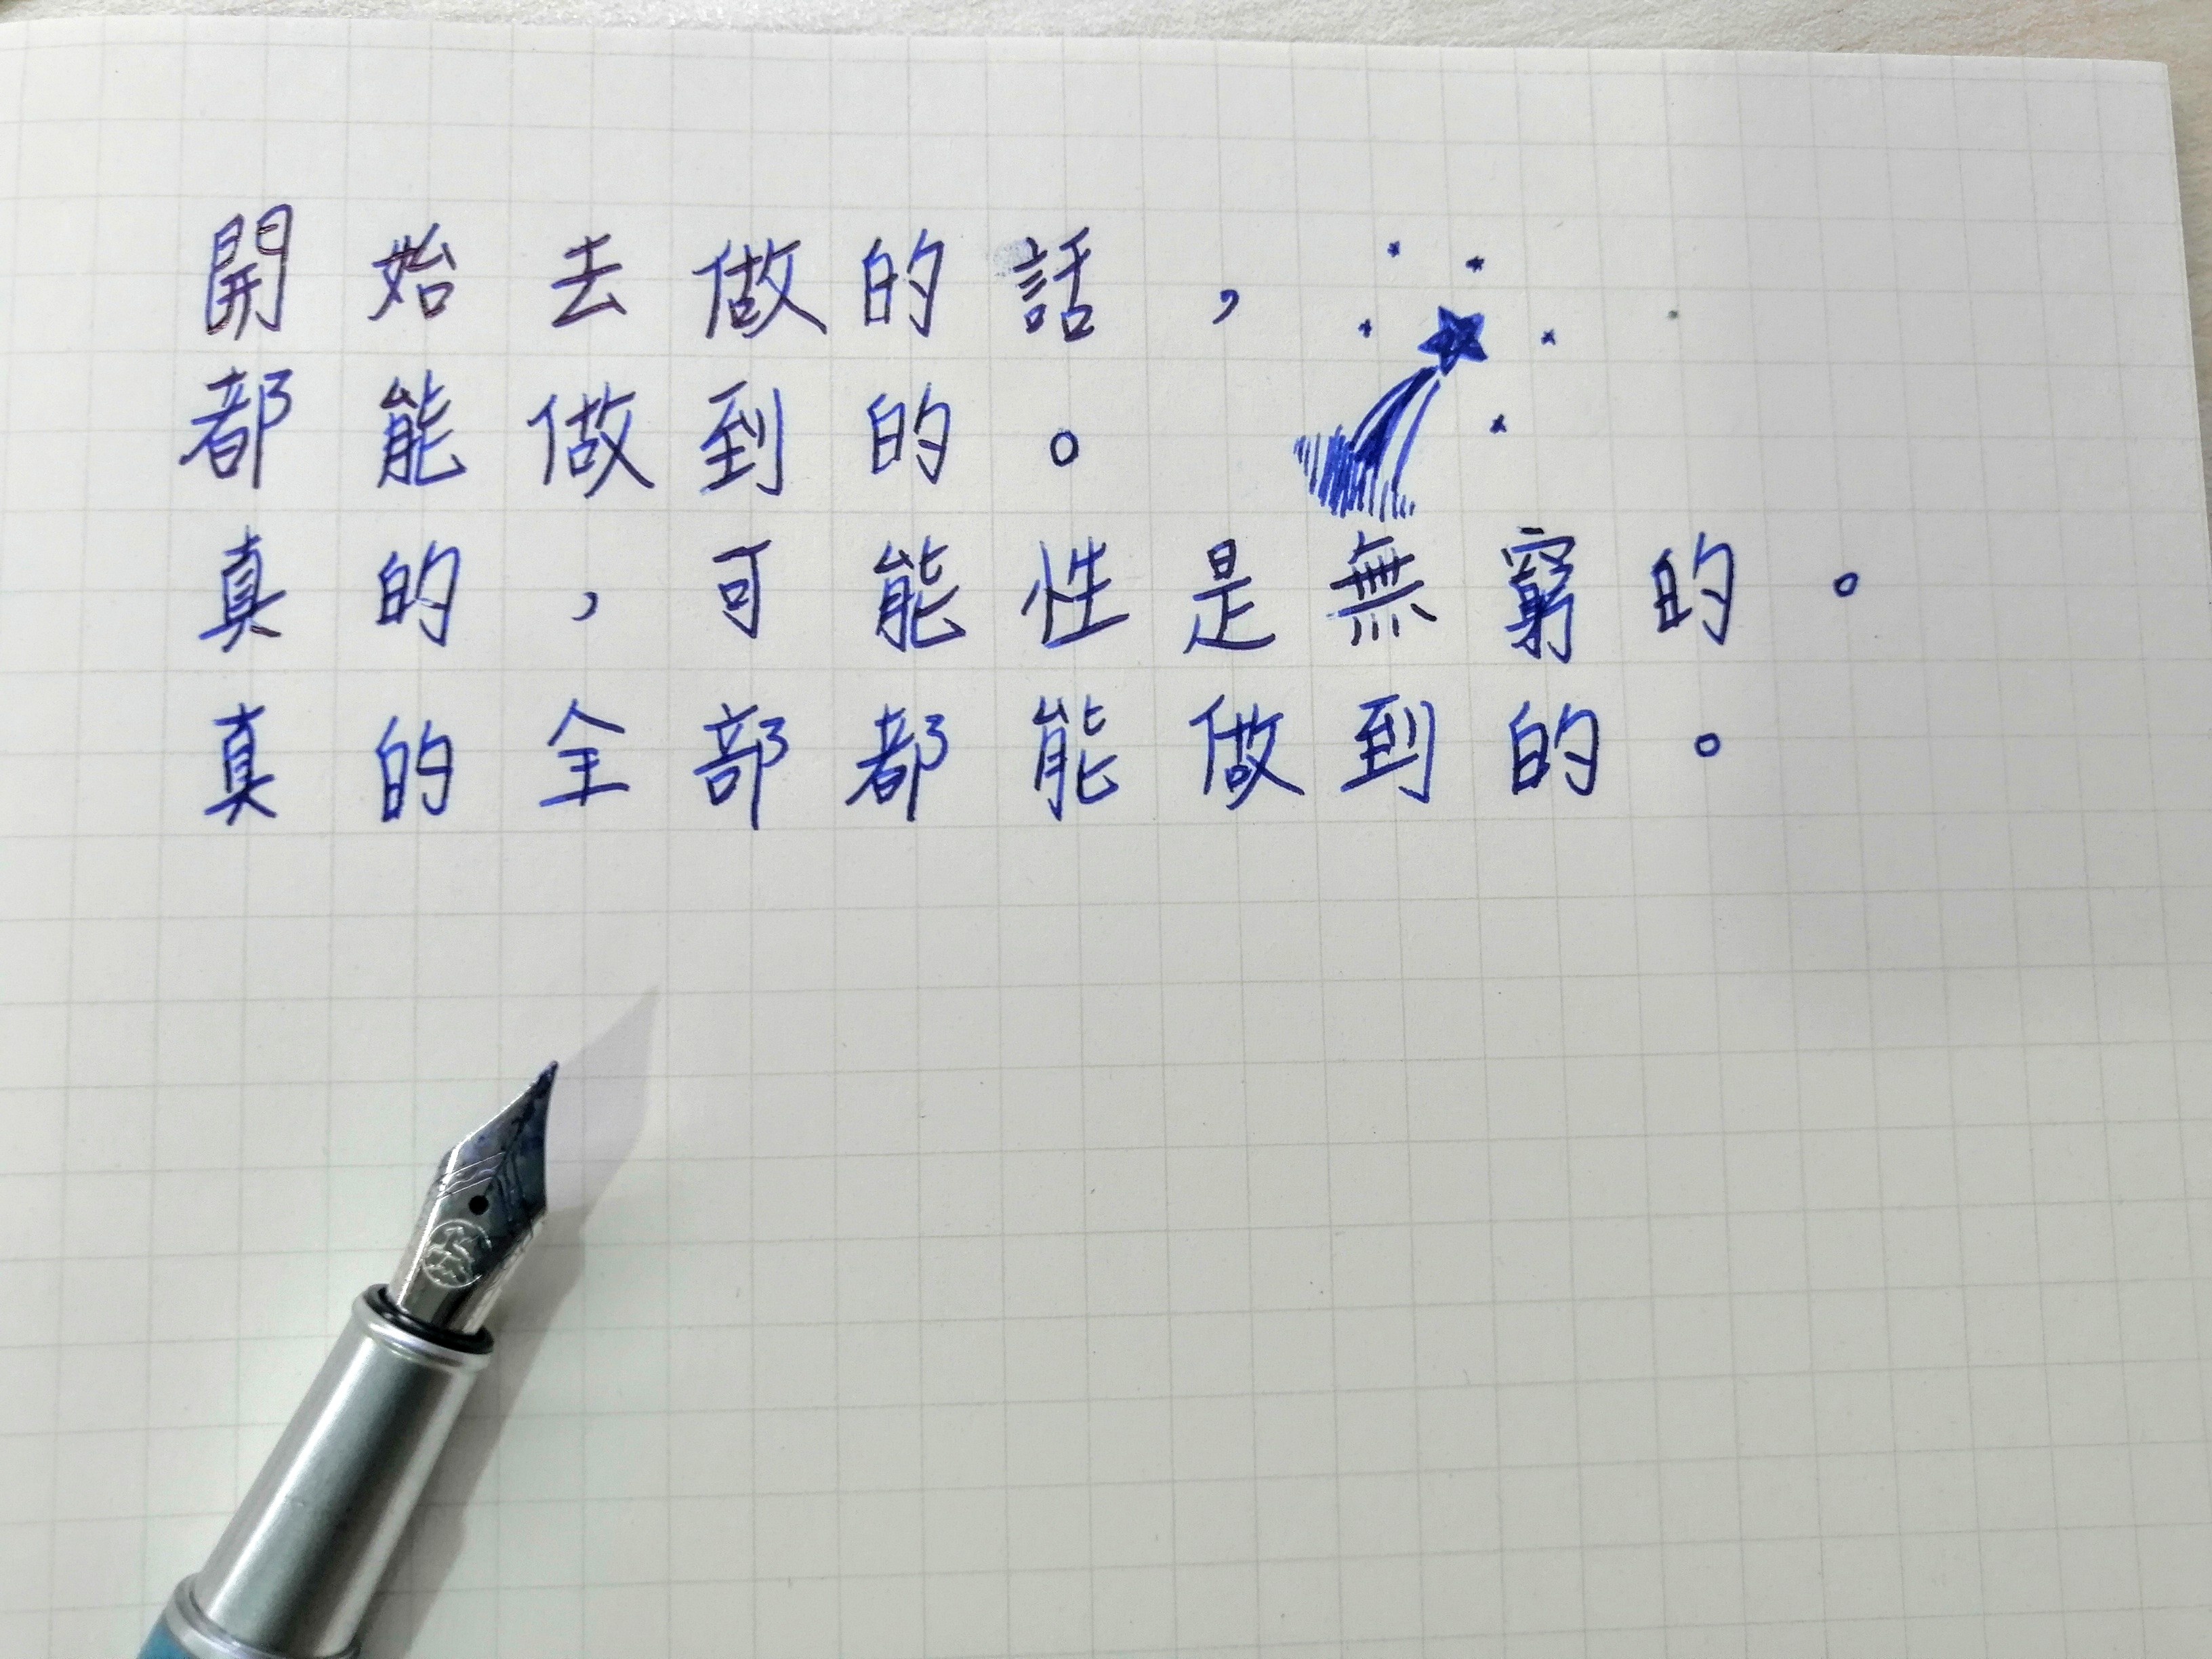 開始去做的話，
都能做到的。
真的，可能性是無窮的。
真的全部都能做到的。